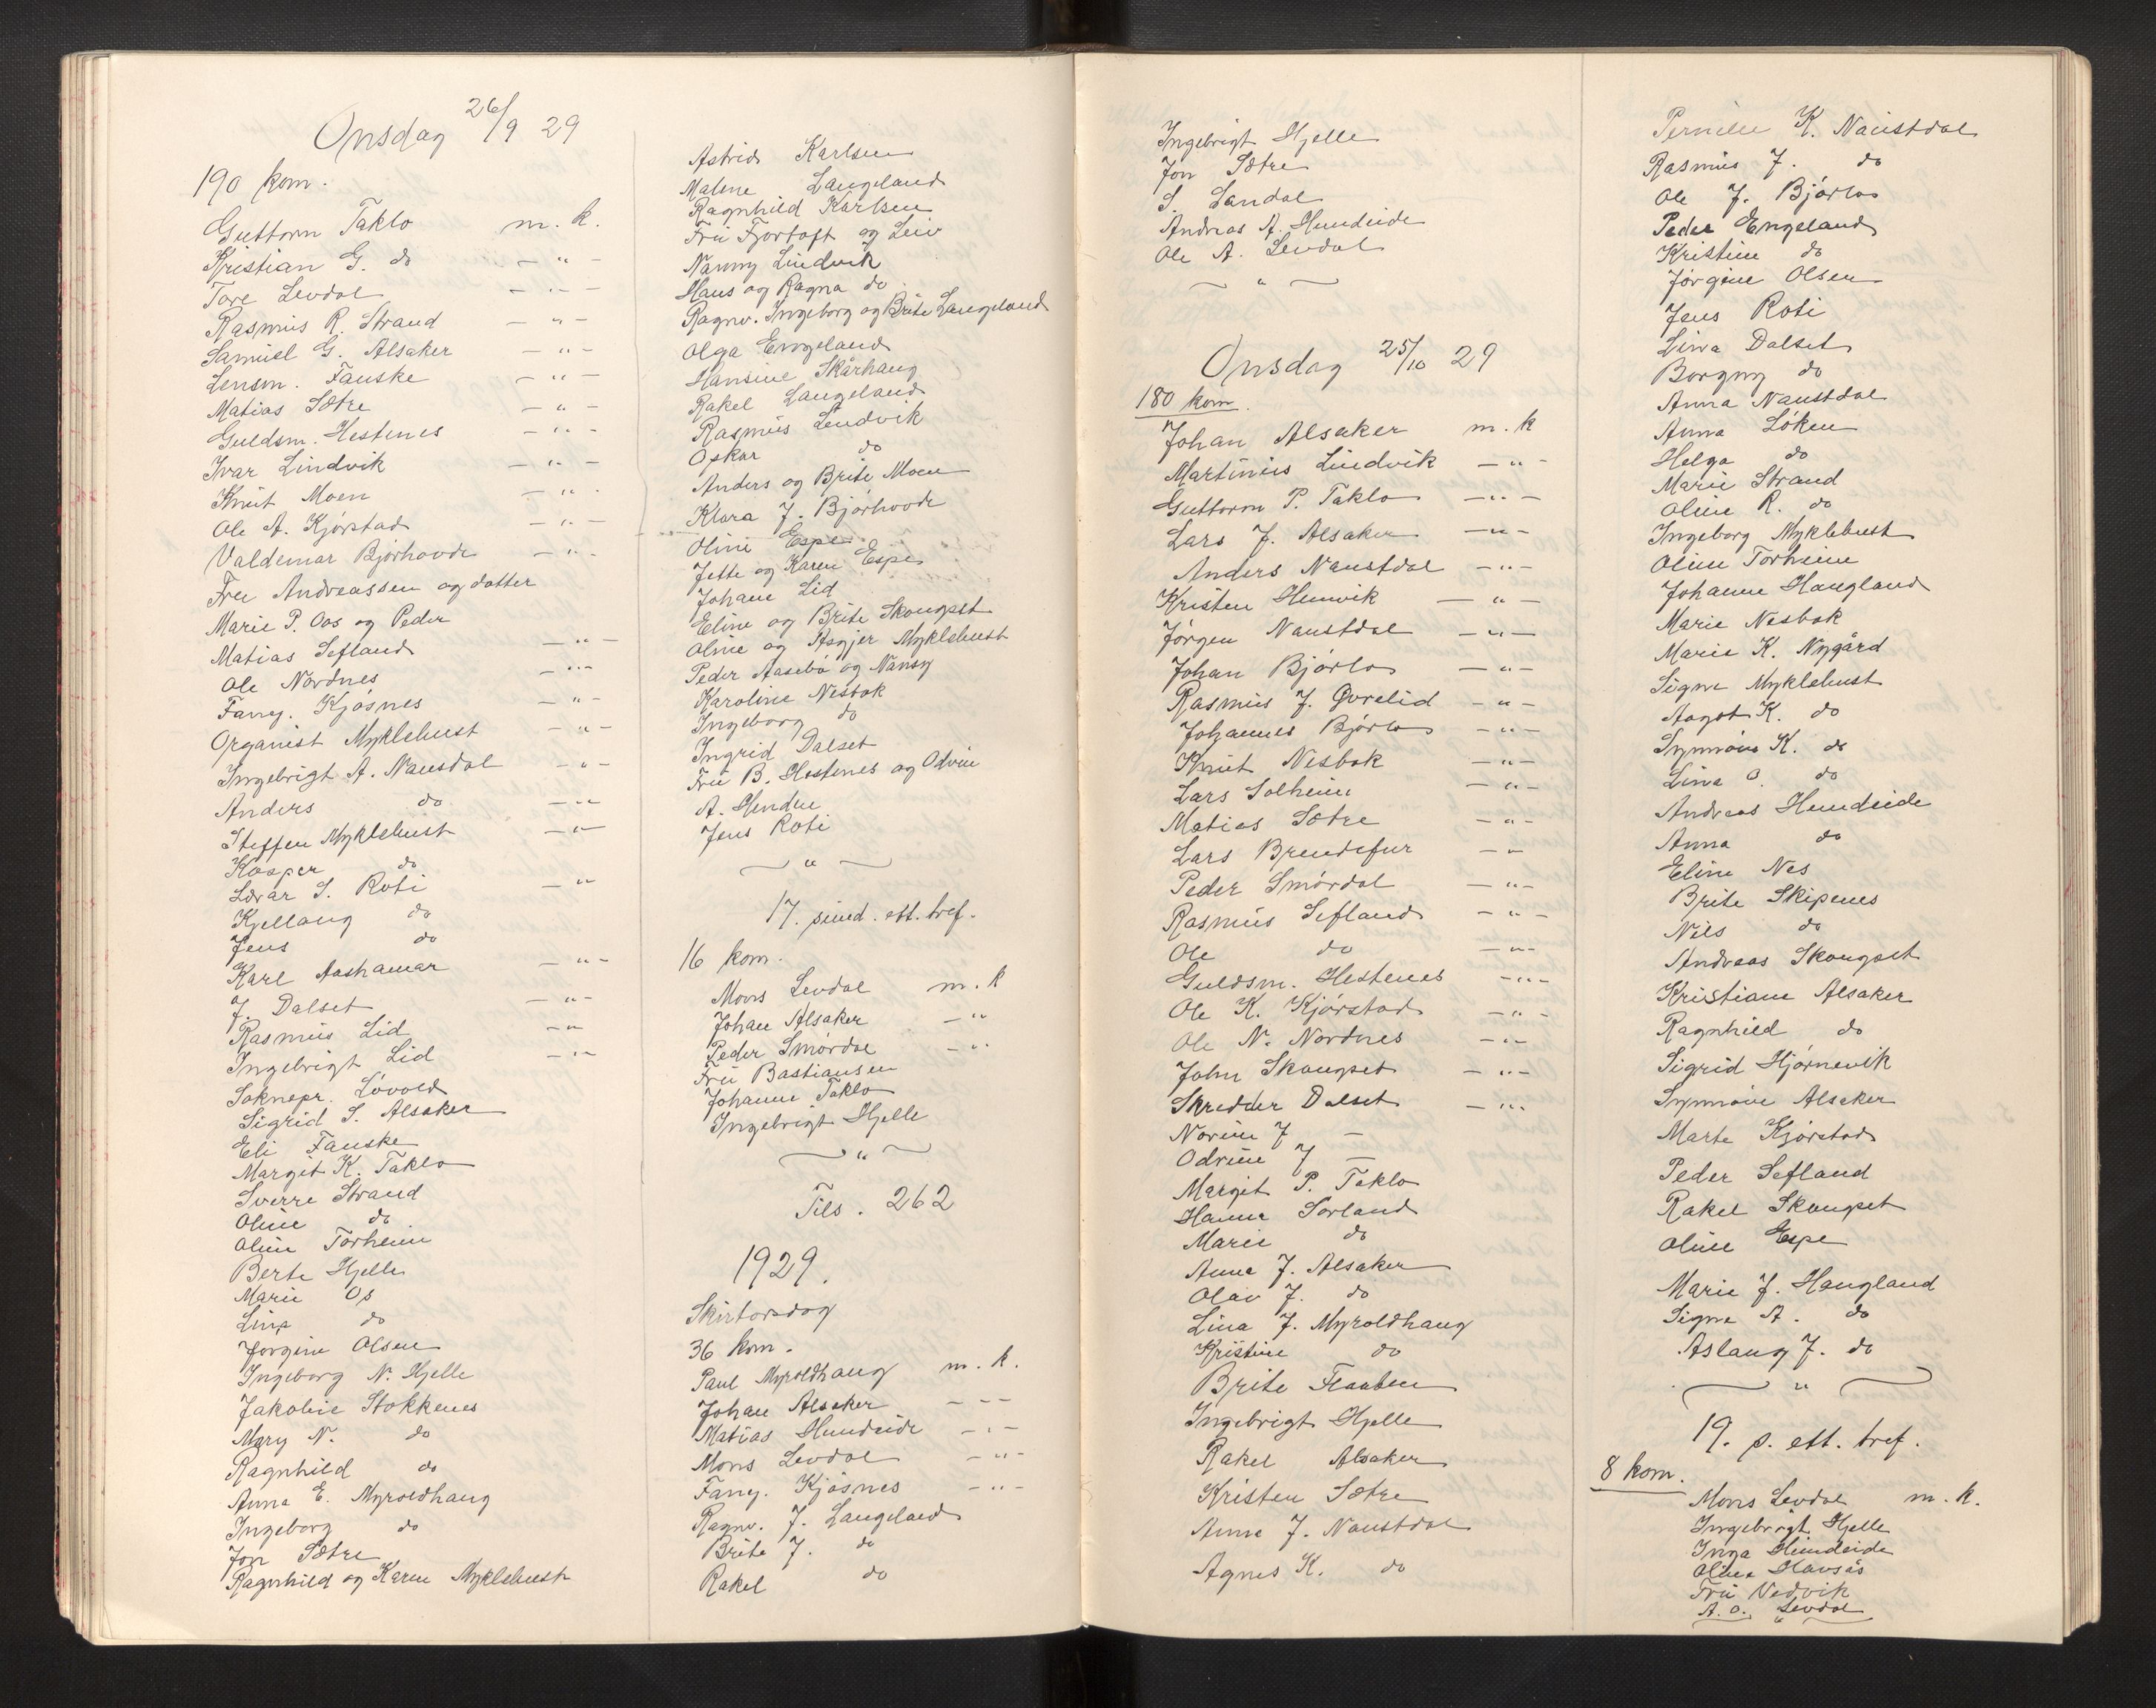 Onsdag 26/9 29
190 kom.
Guttorm Taklo m. k.
Kristian G. do — " —
Tore Levdal — " —
Rasmus R. Strand — " —
Samuel G. Alsaker — " —
Lensm. Fauske — " —
Matias Sætre — " —
Guldsm. Hestenes — " —
Ivar Lindvik — " —
Knut Moen — " —
Ole A. Kjørstad — " —
Valdemar Bjørhovde — " —
Fru Andreassen og datter
Marie P. Oos og Peder
Matias Sefland — " —
Ole Nordnes — " —
Fang. Kjøsnes — " —
Organist Myklebust — " —
Ingebrigt A. Nausdal — " —
Anders do — " —
Steffen Myklebust — " —
Kasper do
Lovar S. Roti — "
Kjellaug do
Jens do
Karl Aashamar — " —
J. Dalset — " —
Rasmus Lid — "
Ingebrigt Lid — " —
Soknepr. Løvold
Sigrid S. Alsaker
Eli Fauske
Margit K. Taklo
Sverre Strand
Oline do
Oline Torheim
Berte Hjelle
Marie Os
Lina do
Jørgine Olsen
Ingeborg N. Hjelle
Jakobie Stokkenes
Mary N. do
Ragnhild do
Anna E. Myroldhaug
Ingeborg do
Jon Sætre
Ragnhild og Karen Myklebust
Astrid Karlsen
Malene Langeland
Ragnhild Karlsen
Fru Fjørtoft og Leiv
Nanny Lindvik
Hans og Ragna do
Ragnv. Ingeborg og Brite Langeland
Olga Engeland
Hansine Skårhaug
Rakel Langeland
Rasmus Lendvik
Oskar do
Anders og Brite Moen
Klara J. Bjørhovde
Oline Espe
Jette og Karen Espe
Johane Lid
Eline og Brite Skongset
Oline og Asgjer Myklebust
Peder Aasebø og Nansy
Karoline Nesbak
Ingeborg do
Ingrid Dalset
Fru B. Hestenes og Odvin
A. Henden
Jens Roti
— " —
17. sund. ett. tref.
16 kom.
Mons Levdal m. k
Johan Alsaker — "
Peder Smørdal — "
Fru Bastiansen
Johanne Taklo
Ingebrigt Hjelle
— " —
Tils. 262
1929.
Skirtorsdag
36 kom.
Paul Myroldhaug m. k.
Johan Alsaker — — —
Matias Hundeide — " —
Mons Levdal — " —
Fang. Kjøsnes — " —
Ragnv. J. Langeland
Brite J. do
Rakel do
Ingebrigt Hjelle
Jon Sætre
S. Sandal
Andreas A. Hundeide
Ole A. Levdal
— " —
Onsdag 25/10 29
180 kom.
Johan Alsaker m. k
Martinus Lindvik — " —
Guttorm P. Taklo — " —
Lars J. Alsaker — " —
Anders Naustdal — " —
Kristen Hennvik — " —
Jørgen Naustdal — " —
Johan Bjørlo — " —
Rasmus J. Øvrelid — " —
Johannes Bjørlo — " —
Knut Nesbak — " —
Lars Solheim — " —
Matias Sætre — " —
Lars Brendefur — "
Peder Smørdal — " —
Rasmus Sefland — " —
Ole do — " —
Guldsm. Hestenes — " —
Ole K. Kjørstad — " —
Ole N. Nordnes — " —
John Skongset — " —
Skredder Dalset — " —
Norine J —
Odrine J —
Margit P. Taklo
Hanna Sørland
Marie do
Anna J. Alsaker
Olav J. do
Lina J. Myroldhaug
Kristine do
Brite Flaaten
Ingebrigt Hjelle
Rakel Alsaker
Kristen Sætre
Anna J. Naustdal
Agnes K. do
Pernille K. Naustdal
Rasmus J. do
Ole J. Bjørlo
Peder Engeland
Kristine do
Jørgine Olsen
Jens Roti
Lina Dalset
Borgny do
Anna Naustdal
Anna Løken
Helga do
Marie Strand
Oline R. do
Ingeborg Myklebust
Oline Torheim
Johanne Haugland
Marie Nesbak
Marie K. Nygård
Signe Myklebust
Aagot K. do
Synnøve K. do
Lina O. do
Andreas Hundeide
Anna do
Eline Nes
Brite Skipenes
Nils do
Andreas Skongset
Kristiane Alsaker
Ragnhild do
Sigrid Hjørnevik
Synnøve Alsaker
Marte Kjørstad
Peder Sefland
Rakel Skongset
Oline Espe
Marie J. Haugland
Signe A. do
Aslaug J. do
— " —
19. s. ett. tref.
8 kom.
Mons Levdal m. k.
Ingebrigt Hjelle
Inga Hundeide
Oline Havsås
Fru Vedvik
A. O. Levdal
— " —